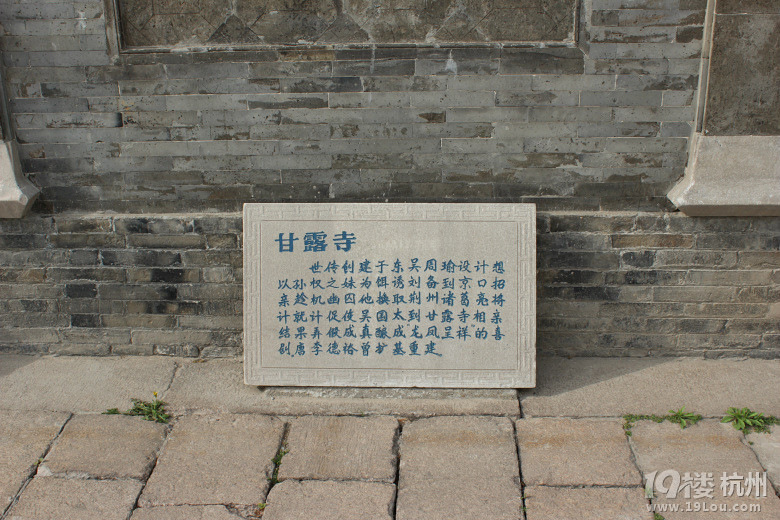 甘露寺
世传创建于东吴周瑜设计想
以孙权之妹为饵诱刘备到京口招
亲趁机幽囚他换取荆州诸葛亮将
计就计促使吴国太到甘露寺相亲
结果弄假成真酿成"龙凤呈祥"的喜
剧唐李德裕曾扩基重建
19楼 杭州
www.19Lou.com